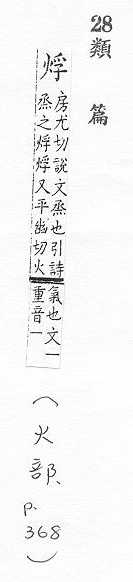 28類篇
烰
房尤切說文烝也引詩
烝之烰烰又平幽切火
氣也文一
重音一
(火部, p. 368)